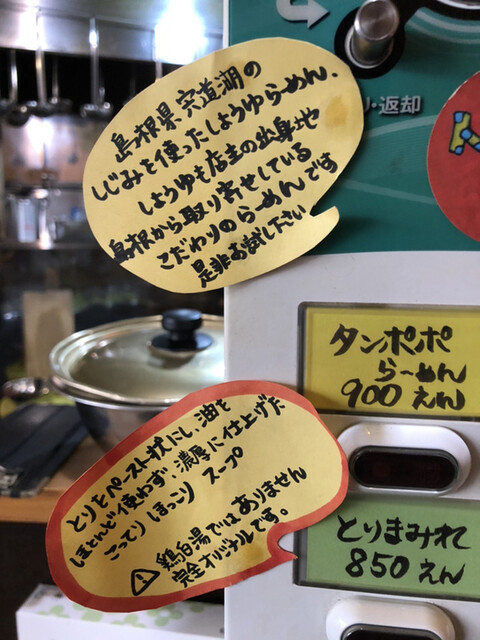 ・返却
島根県 宍道湖の
しじみを使ったしょうゆらーめん.
しょうゆも店主の出身地
島根から取り寄せしている
こだわりのらーめんです
是非お試し下さい
タンポポ
らーめん
900えん
とりをペースト状にし、油を
ほとんど使わず、濃厚に仕上げた
こってり ほっこり スープ
⚠鶏白湯ではありません
完全オリジナルです。
とりまみれ
850えん